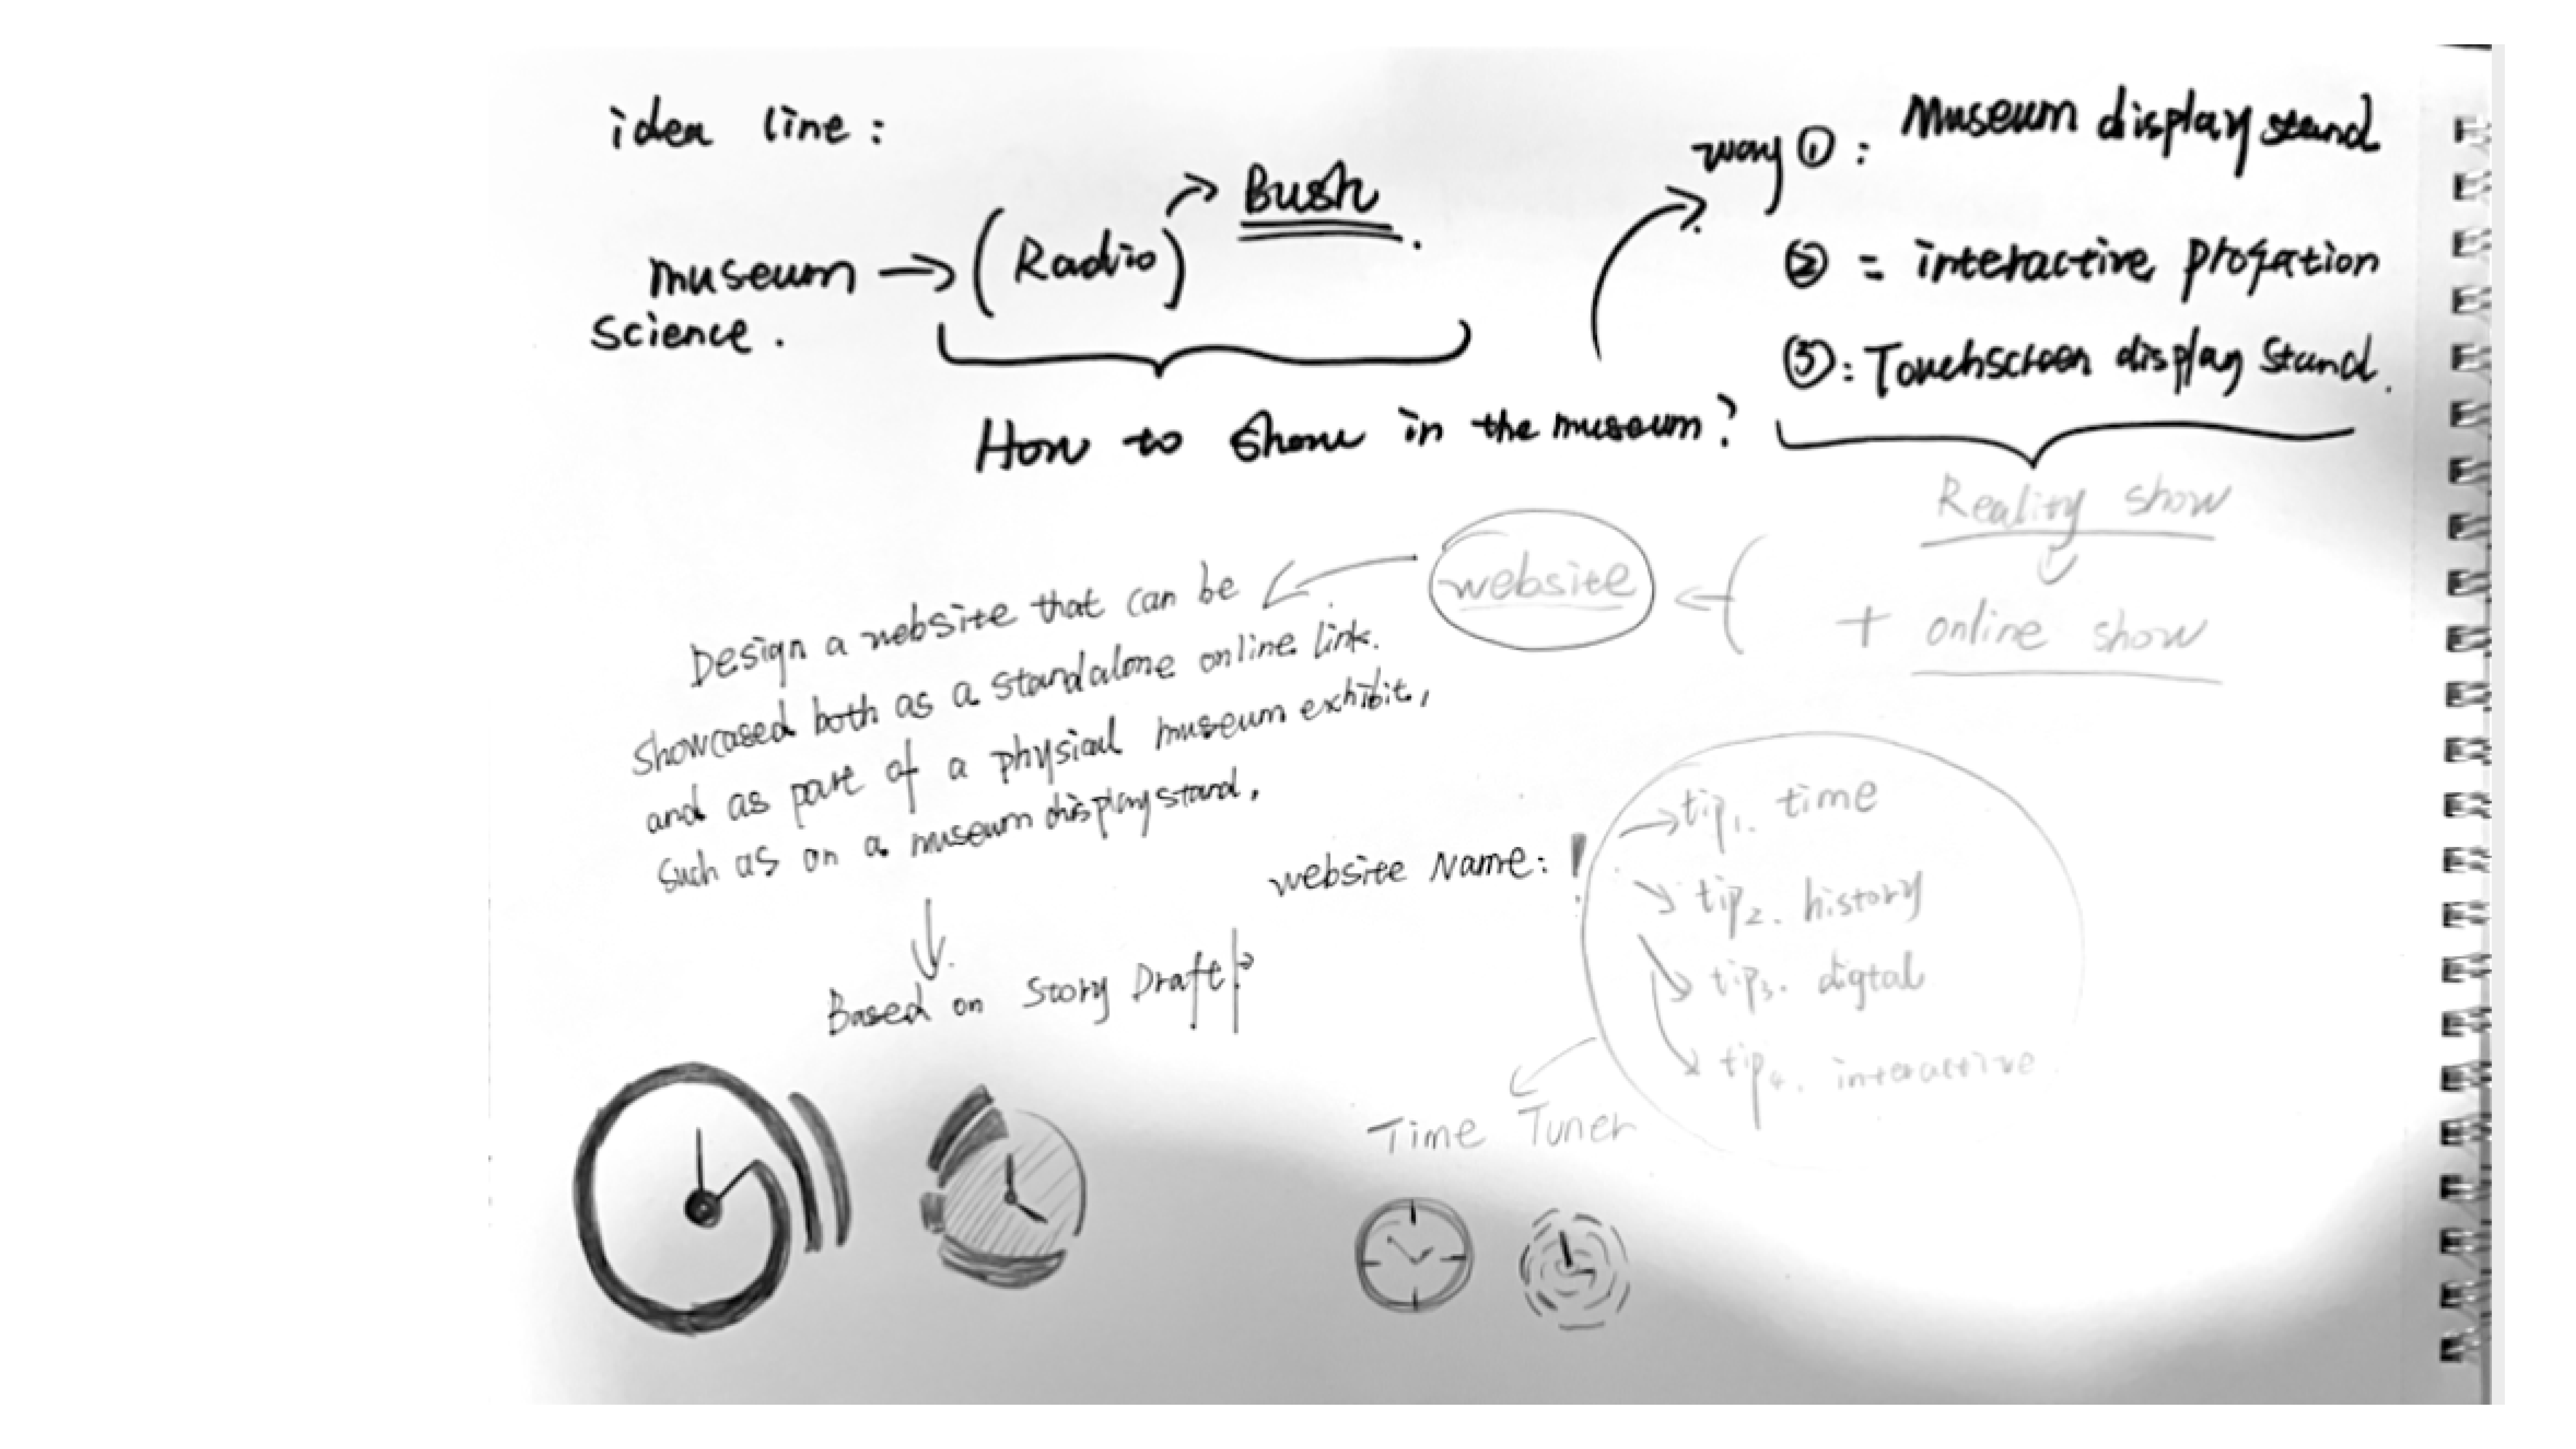 idea line:
museum → (Radio) → Bush.
science.
How to show in the museum?
way ①: Museum display stand
② = interactive projation
③: Touchscreen display stand.
Reality show
+ online show
website
Design a website that can be
showcased both as a standalone online link.
and as part of a physical museum exhibit,
such as on a museum display stand.
Based on Story Draft
website Name:
tip1. time
tip2. history
tip3. digtal
tip4. interactive.
Time Tuner